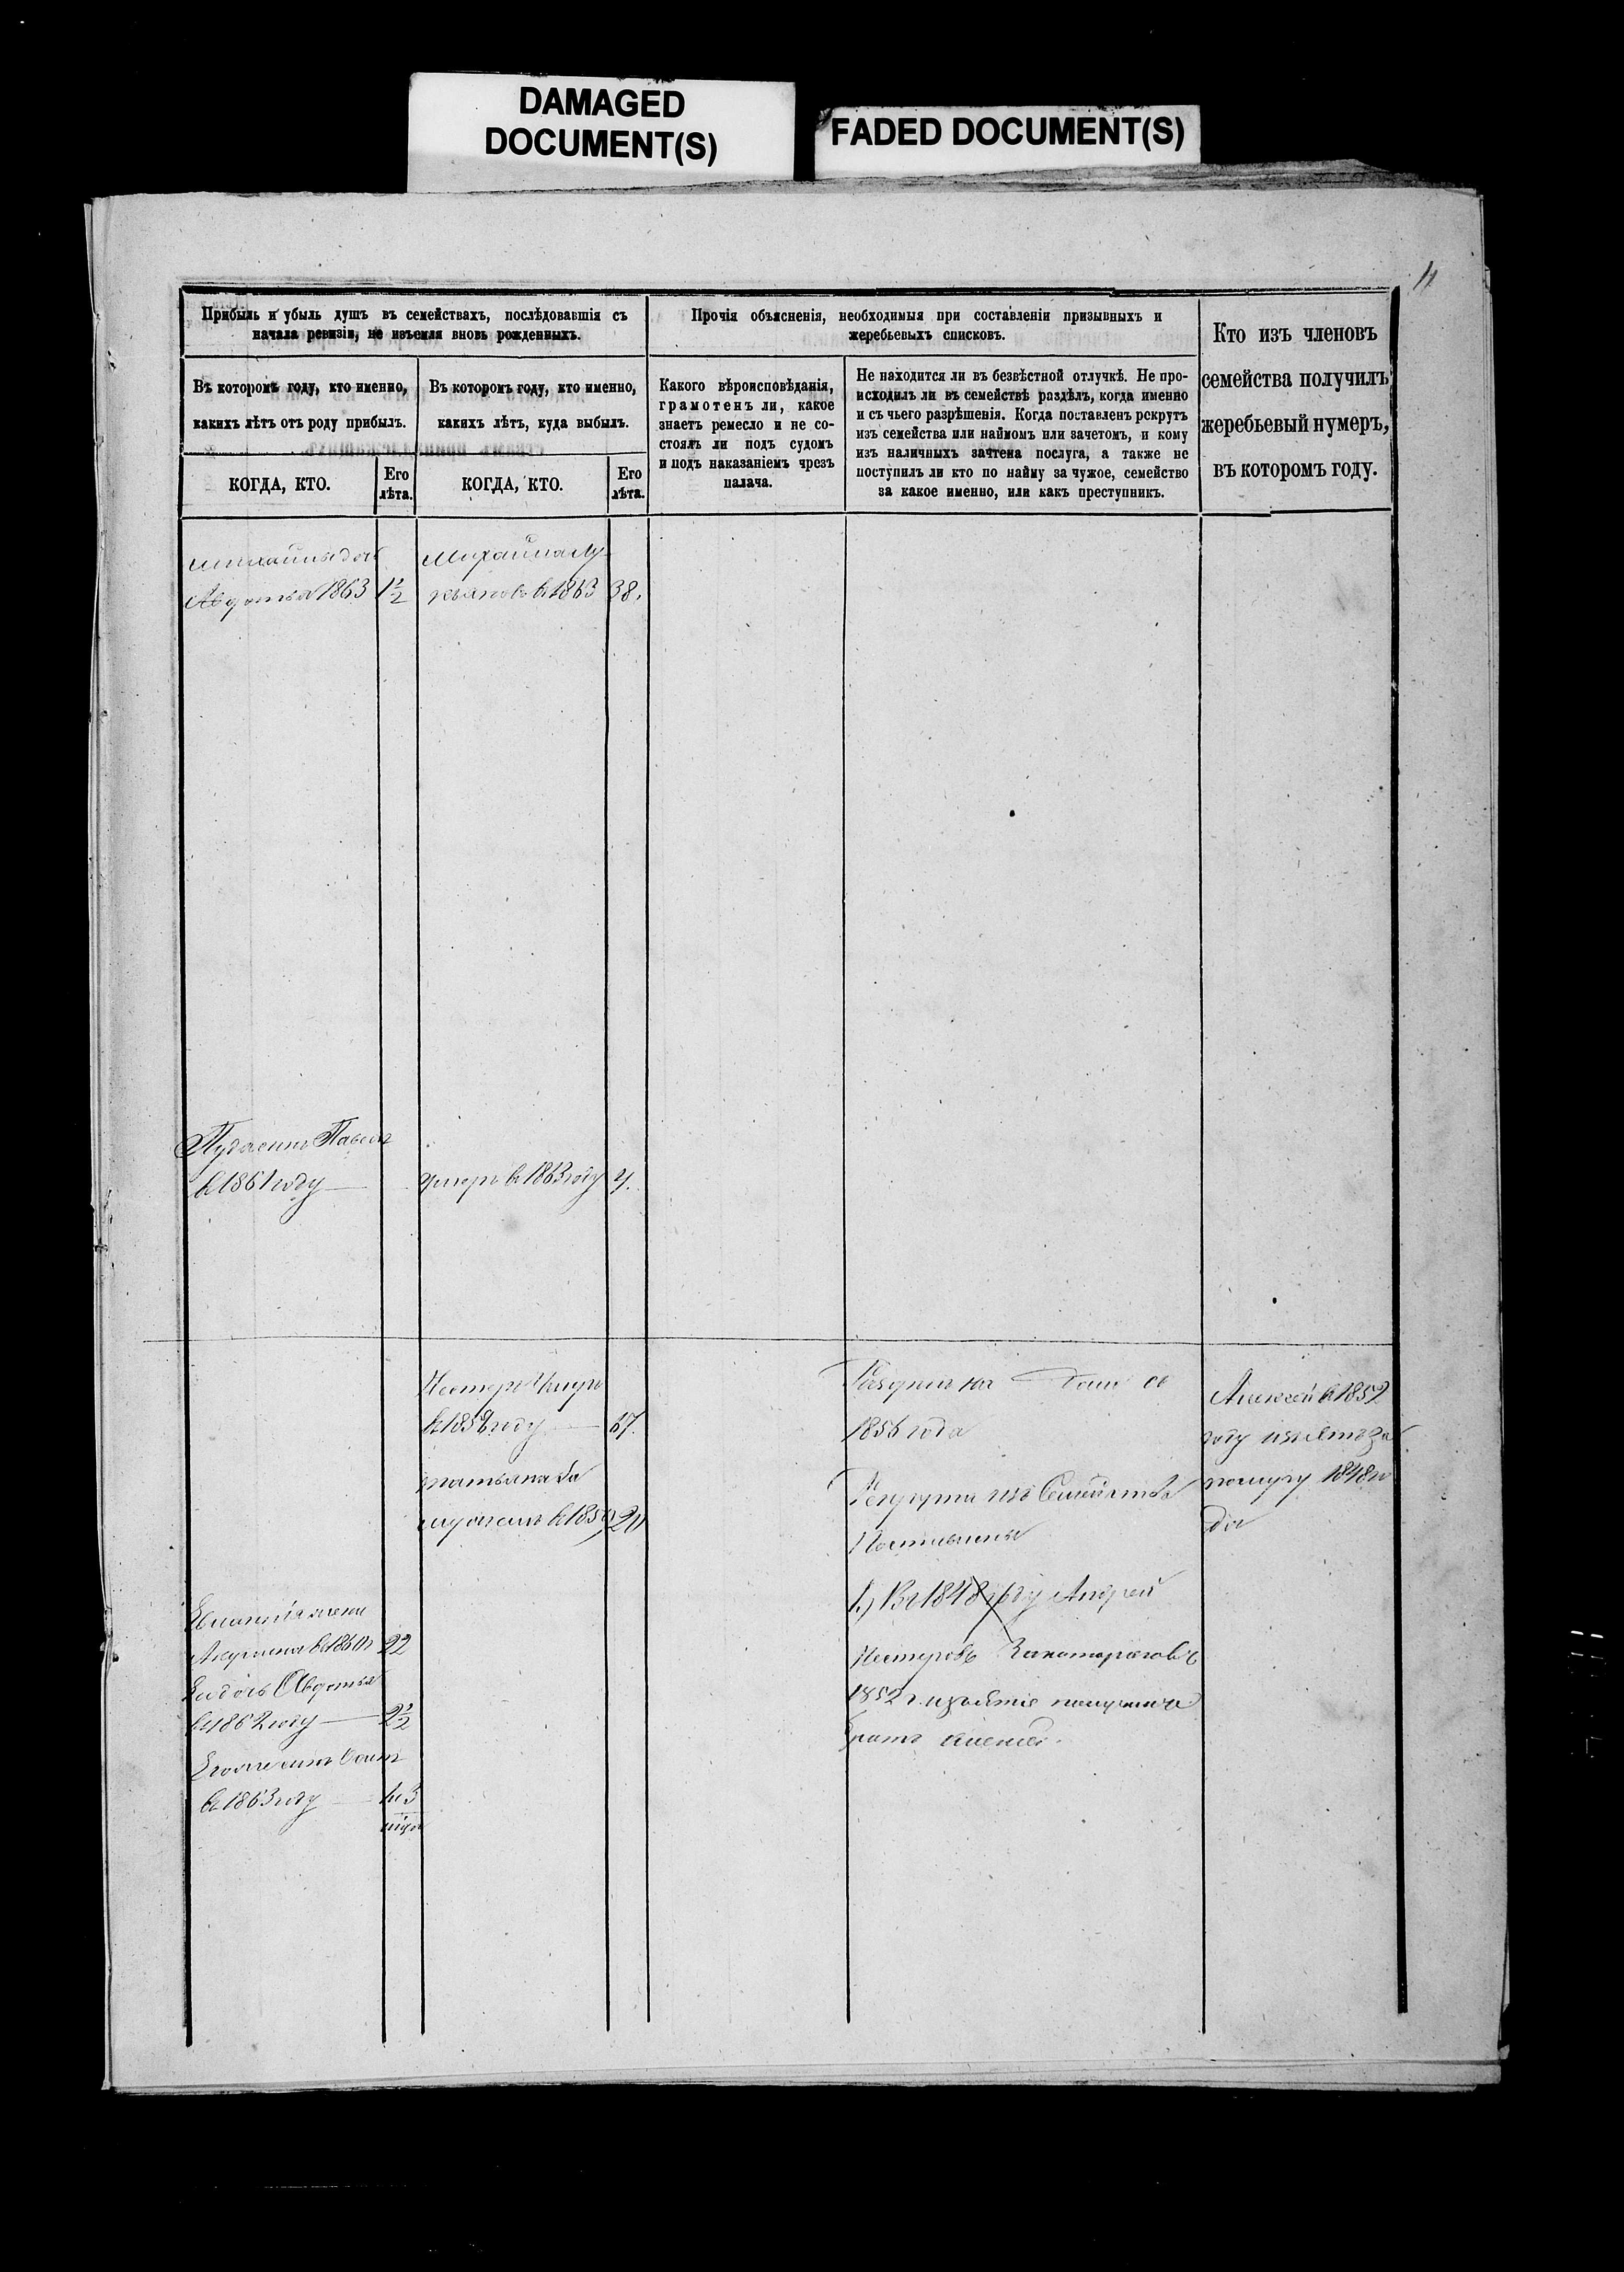 DAMAGED
DOCUMENT(S)
FADED DOCUMENT(S)
Прибыль и убыль душъ въ семействахъ, послѣдовавшія съ
начала ревизіи, не изъемля вновь рожденныхъ.
Въ которомъ году, кто именно,
какихъ лѣтъ отъ роду прибылъ.
Въ которомъ году, кто именно,
какихъ лѣтъ, куда выбылъ.
КОГДА, КТО.
Его
лѣта.
КОГДА, КТО.
Его
лѣта.
Прочія объясненія, необходимыя при составленіи призывныхъ и
жеребьевыхъ списковъ.
Какого вѣроисповѣданія,
грамотенъ ли, какое
знаетъ ремесло и не со-
стоялъ ли подъ судомъ
и подъ наказаніемъ чрезъ
палача.
Не находится ли въ безвѣстной отлучкѣ. Не про-
исходилъ ли въ семействѣ раздѣлъ, когда именно
и съ чьего разрѣшенія. Когда поставленъ рекрутъ
изъ семейства или наймомъ или зачетомъ, и кому
изъ наличныхъ зачтена послуга, а также не
поступилъ ли кто по найму за чужое, семейство
за какое именно, или какъ преступникъ.
Кто изъ членовъ
семейства получилъ
жеребьевый нумеръ,
въ которомъ году.
Михайлы дочь
Авдотья 1863 1½
Михайла Лу-
кьяновъ в 1863 38.
сынъ Павелъ
в 1861 году
умеръ в 1863 году
Нестеръ умеръ
в 1858 году 67.
Татьяна за
мужемъ в 1859 20
жена
Акулина в 1860 22
Ея дочь Авдотья
в 1862 году 2½
Егоръ сынъ
в 1863 году
1856 года
Рекрута изъ Семейства
Поставлены
1.) Въ 1848 году Андрей
Нестеровъ За которого въ
1852 г. изъятіе получилъ
братъ Алексей.
Алексей в 1852
году изъятъ за
послугу 1848 го
да